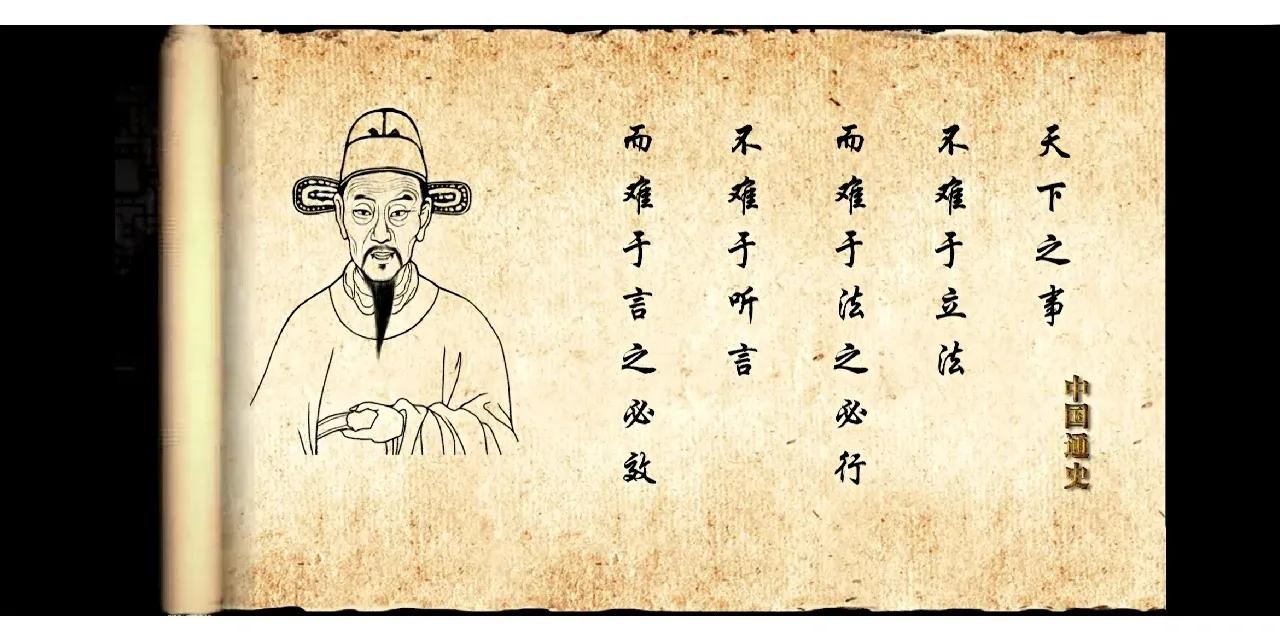 天下之事
不难于立法
而难于法之必行
不难于听言
而难于言之必效
中国通史